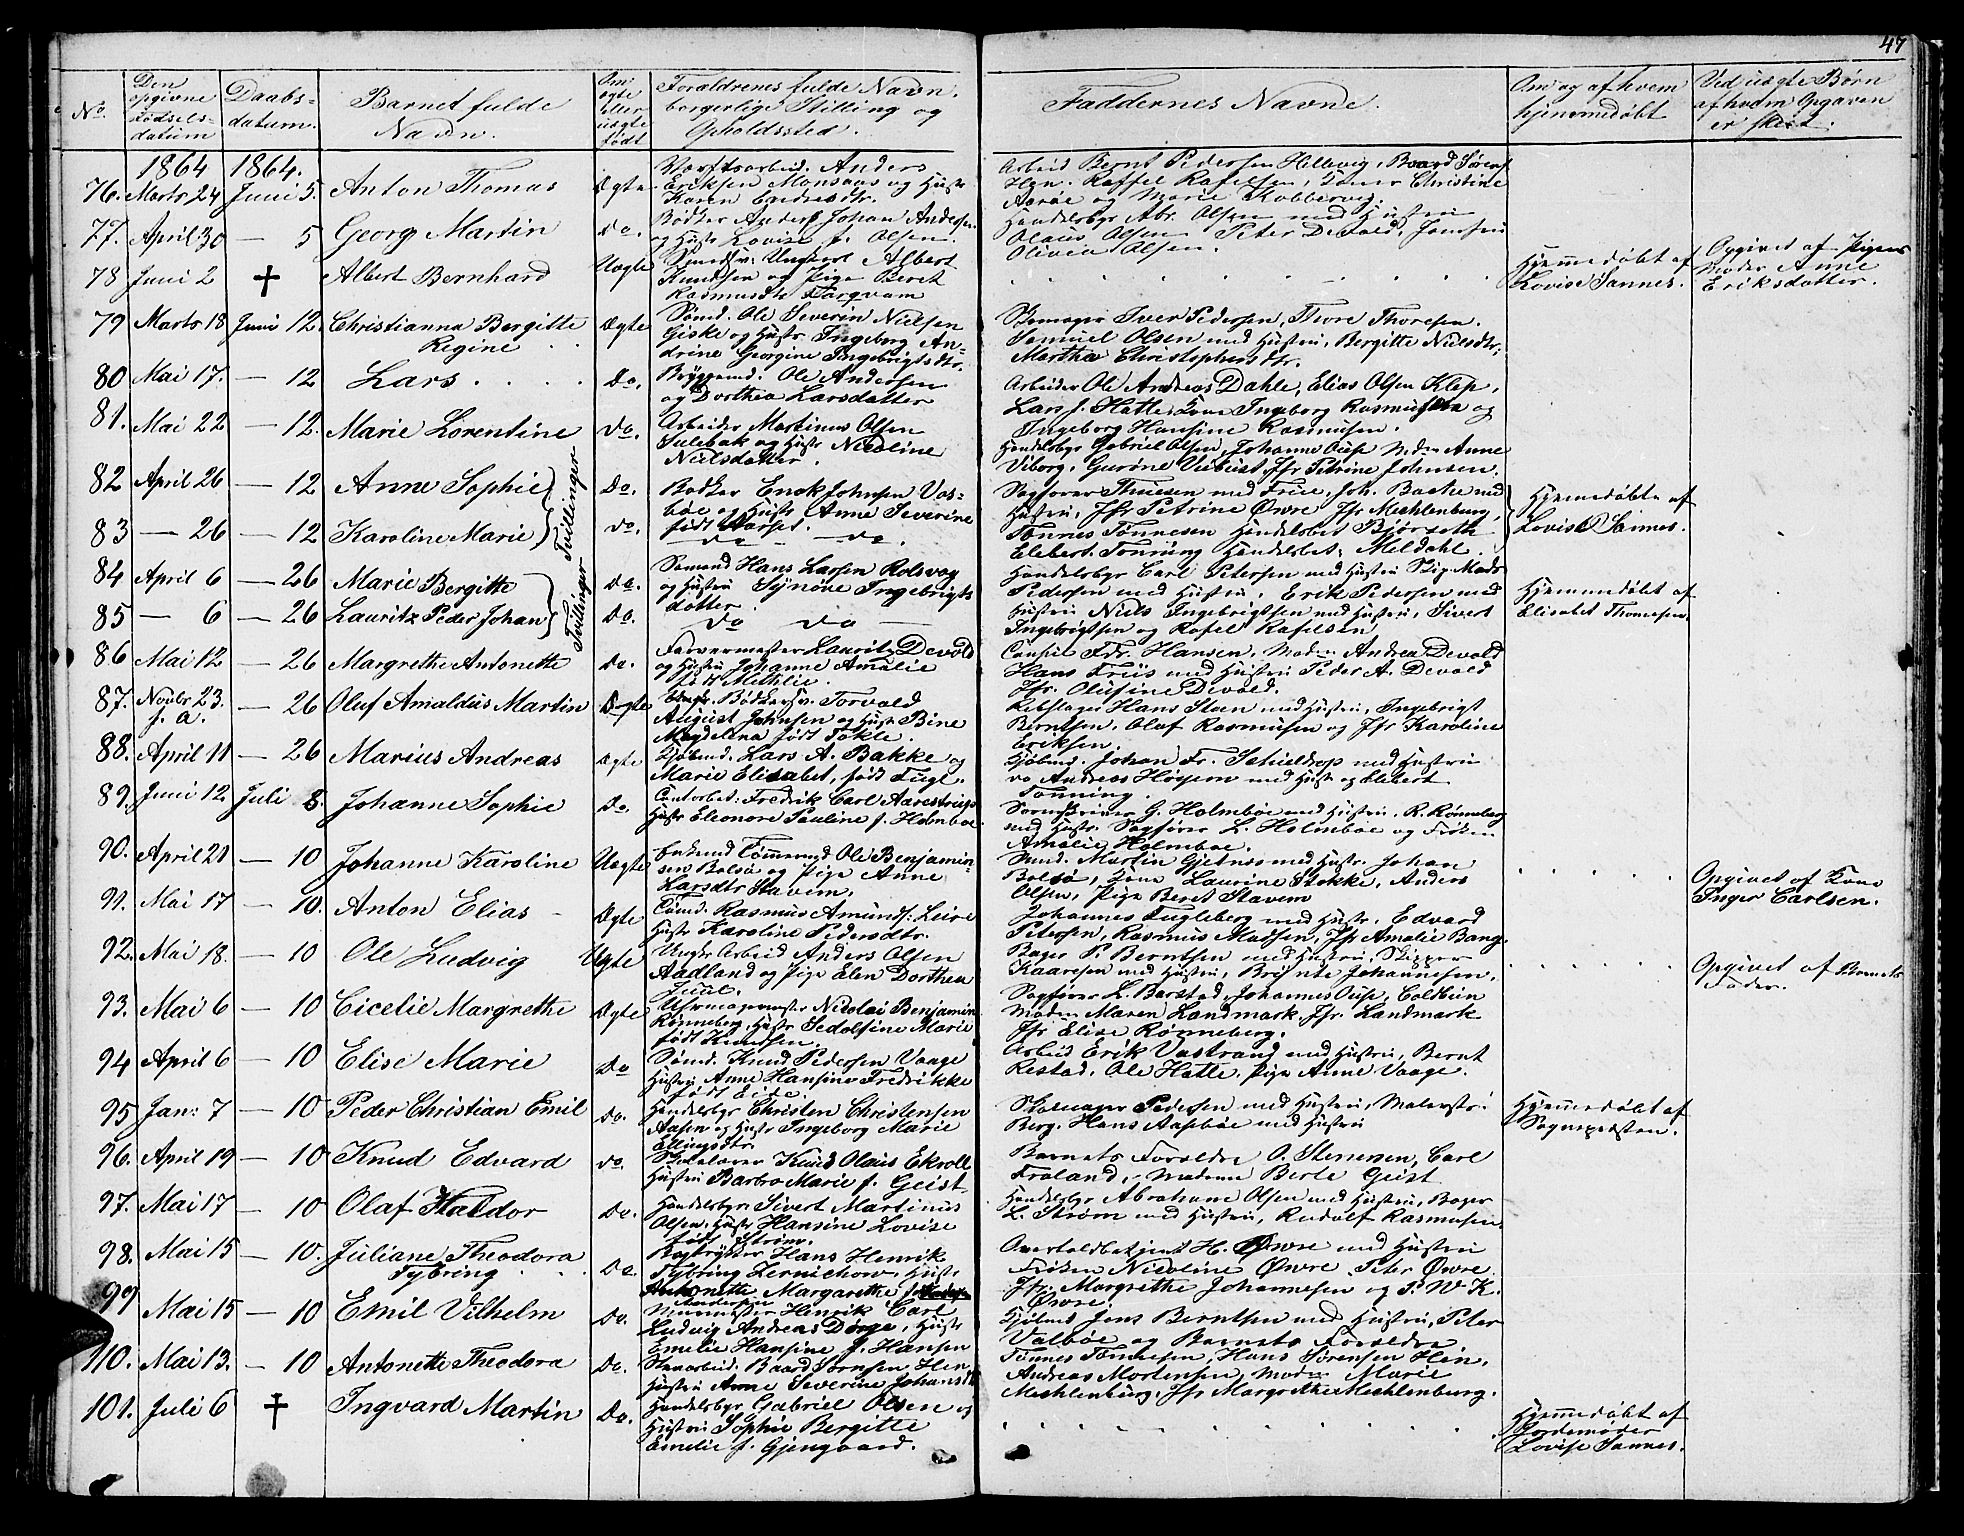 47
No. | Den opgivne Fødsels-datum | Daabs-datum. | Barnet fulde Navn. | Om ægte eller uægte født | Forældrenes fulde Navn. borgerlige Stilling og Opholdssted. | Faddernes Navne. | Om og af hvem hjemmedøbt | Ved uægte Børn af hvem Opgaven er skeet.
1864 1864.
76. Marts 24 Juni 5. Anton Thomas Ægte Værftsarbeid. Anders
Eriksen Monsaas og Hustr
Karen Endresdtr.
Arbeid Bernt Pedersen Hellevig, Baard Sørens
Hen. Raffel Rafelsen, Christine
Aarøe og Marie Kobbervig.
77. April 30 — 5 Georg Martin do. Bødker Anders Johan Andersen
og Hustr Lovise f. Olsen.
Handelsbgr Abr. Olsen med Hustrui
Olaus Olsen Peter Devold, Jomfru
Olivia Olsen.
78 Juni 2 † Albert Bernhard Uægte Smedsv: Ungkarl Albert
Knudsen og Pige Beret
Rasmusdtr Farqvam
Hjemmedøbt af
Lovise Sannes.
Opgivet af Pigens
Moder Anne
Eriksdatter.
79 Marts 18 Juni 12. Christianna Bergitte
Regine
Ægte Sømd. Ole Severin Nielsen
Giske og Hustr Ingeborg An-
drine Georgine Ingebrigtsdtr.
Skomager Iver Pedersen, Thore Thoresen.
Samuel Olsen med Hustrui, Bergitte Nielsdtr,
Martha Christophersdtr.
80 Mai 17. — 12 Lars Do. Bryggemd. Ole Andersen
og Dorthea Larsdatter
Arbeider Ole Andreas Dahle, Elias Olsen Klep,
Lars J. Hatle, Kone Ingeborg Rasmussen og
Ingeborg Hansine Rasmusen.
81. Mai 22 — 12. Marie Lorentine do. Arbeider Martinus Olsen
Sulebak og Hustr Nicoline
Nielsdatter.
Handelsbgr Gabriel Olsen, Johanne Oüsp Mdm Anne
Viborg, Gurine Jfr Petrine Johnsen.
82 April 26 — 12 Anne Sophie Do. Bødker Enok Johnsen Vos-
böe og Hustr Anne Severine
født
Sagfører Thiesen med Frue, Joh. Backe med
Hustrui, Jfr Petrine Øwre, Jfr Mechlenburg,
Hjemmedøbte af
Lovise Sannes.
Tvillinger
83 — 26 — 12 Karoline Marie do. do do.
Tønnes Tønnesen Handelsbet Bjørseth
Elebert Tonning Handelsbet: Meldahl.
84 April 6 — 26 Marie Bergitte do. Sømand Hans Larsen Rolsvog
og Hustrui Synøve Ingebrigts
datter
Handelsbgr Carl Petersen med Hustrui Skip. Mads
Pedersen med Hustrui, Erik Pedersen med
Hjemmedøbt af
Elisabet Thomesen
Tvillinger
85 — 6 — 26 Lauritz Peder Johan Do. do do —
Hustrui Niels Ingebrigtsen med Hustrui, Sivert
Ingebrigtsen og Rafel Rafelsen
86 Mai 12 — 26 Margrethe Antonette do. Farvermester Lauritz Devold
og Hustrui Johanne Amalie
født Methlie.
Consul Fdr. Hansen, Madm Andrea Devold
Hans Friis med Hustrui Peder A. Devold
Jfr. Olufine Devold.
87. Novbr 23.
f. a. — 26 Oluf Amaldus Martin Ægte Bødkersv. Torvald
August Johnsen og Hustr Bine
Magdelena født Tokle.
Rebslager Hans Steen med Hustrui, Ingebrigt
Berntsen, Olaf Rasmusen og Jfr Karoline
Eriksen.
88. April 11 — 26 Marius Andreas Ægte Kjøbmd. Lars A. Bakke og
Marie Elisabet, født Fugl.
Kjøbmd. Johan Fr. Schieldrop med Hustrui
Andreas med Hustr og Elebert
Tonning.
89. Juni 12 Juli 8. Johanne Sophie Do Contorbet: Fredrik Carl Aarestrup
Hustr Eleonore Pauline f. Holmboe
Sorenskriver G. Holmboe med Hustrui, R. Rønneberg
med Hustr. Sagfører L. Holmboe og Frøken
Amalie Holmboe.
90. April 21 — 10 Johanne Karoline Uægte Enkemd Tømmermd Ole Benjamin-
sen Bolsø og Pige Anne
Larsdtr Stavem.
Smed. Martin Gjetnes med Hustr. Johan
Bolsø, Kone Laurine Stokke, Anders
Olsen, Pige Beret Stavem
Opgivet af Kone
Inger Carlsen.
91. Mai 17 — 10. Anton Elias Ægte Tømd. Rasmus Amunds. Leire
Hustr Karoline Pedersdtr.
Johannes Fugleberg med Hustr. Edvard
Petersen, Rasmus Madsen, Jfr Amalie Bang.
92. Mai 18. — 10 Ole Ludvig Uægte Ungkr Arbeid Anders Olsen
Aadland og Pige Elen Dorthea
Juul.
Bager P. Berntsen med Hustrui, Skipper
Kaaresen med Hustrui, Johannesen.
Opgivet af Barnets
Fader.
93. Mai 6 — 10 Cicelie Margrethe Ægte Uhrmagermester Nicolai Benjamin
Rønneberg, Hustr Sedolfine Marie
født Knudsen.
Sagfører L. Barstad, Johannes Oüsp, Colkiin
Madm Maren Landmark, Jfr. Landmark
Jfr Elise Rønneberg.
94 April 6 — 10 Elise Marie Do Sømd. Knud Pedersen Vaage
Hustrui Anne Hansine Fredrikke
født Eide.
Arbeid Erik Vestrand med Hustrui, Bernt
Restad, Ole Hatle, Pige Anne Vaage.
95 Jan: 7 — 10 Peder Christian Emil Do. Handelsbgr Christen Christensen
Aasen og Hustr Ingeborg Marie
Ellingsdtr
Skomager Pedersen med Hustrui, Malerstr:
Berg. Hans Aasbøe med Hustrui
Hjemmedøbt af
Sognepresten.
96. April 19 — 10 Knud Edvard do. Skolelærer Knud Olaus Ekroll
Hustrui Barbro Marie f. Geist.
Barnets Forældre O. Stenersen, Carl
Froland, Madame Berle Geist
97. Mai 17 — 10 Olaf Haldor Do. Handelsbgr. Sivert Martinus
Olsen, Hustr Hansine Lovise
født Strøm.
Handelsbgr Abrahame Olsen med Hustrui, Bager
L. Strøm med Hustrui, Rudolf Rasmusen.
98. Mai 15 — 10. Juliane Theodora
Tybring
Do. Bogtrykker Hans Henrik
Tybring Zernichow, Hustr
Antonette Margarethe f.
Andersen
Overtoldbetjent H. Øwre med Hustrui
Frøken Nicoline Øwre, Peter Øwre.
Jfr. Margrethe Johannesen og P. W. K.
Øwre.
99 Mai 15 — 10 Emil Vilhelm Do. Henrik Carl
Ludvig Andreas Dørge, Hustr
Emelie Hansine f. Hansen
Kjøbmd Jens Berntsen med Hustrui, Peter
Valbøe og Barnets Forældre
110. Mai 13. — 10 Antonette Theodora Do. Baard Sørnsen Hen,
Hustrui Anne Severine Johansdtr
Tønnes Tønnesen, Hans Sørensen Hen,
Andreas Mortensen, Madm Marie
Mechlenburg, Jfr Margrethe Mechlenburg.
101. Juli 6 † Ingvard Martin Do. Handelsbgr Gabriel Olsen og
Hustrui Sophie Bergitte
Emelie f. Gjengaard.
Hjemmedøbt af
Jordemoder
Lovise Sannes.